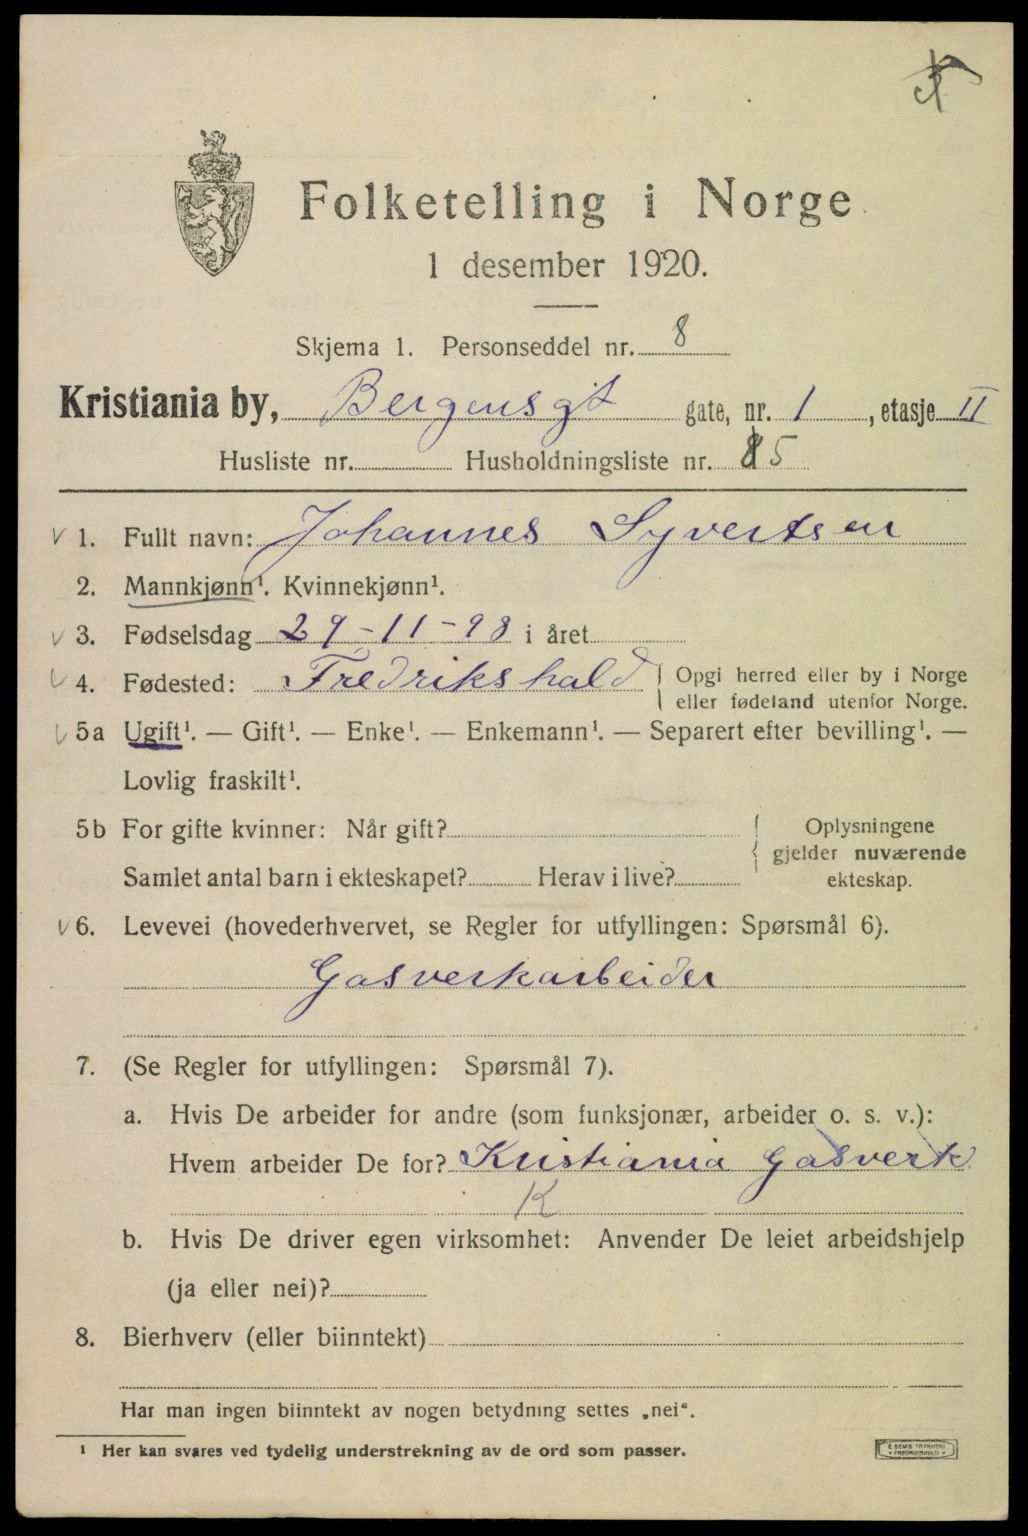 Folketelling i Norge
1 desember 1920.
Skjema 1. Personseddel nr. 8
Kristiania by, Bergensgt gate, nr. 1, etasje II
Husliste nr. Husholdningsliste nr. 5
√ 1. Fullt navn: Johannes Syvertsen
2. Mannkjønn¹. Kvinnekjønn¹.
√ 3. Fødselsdag 29-11-98 i året
√ 4. Fødested: Fredrikshald Opgi herred eller by i Norge
eller fødeland utenfor Norge.
√ 5a Ugift¹. — Gift¹. — Enke¹. — Enkemann¹. — Separert efter bevilling¹. —
Lovlig fraskilt¹.
5b For gifte kvinner: Når gift? Oplysningene
gjelder nuværende
Samlet antal barn i ekteskapet? Herav i live? ekteskap.
√ 6. Levevei (hovederhvervet, se Regler for utfyllingen: Spørsmål 6).
Gasverkarbeider
7. (Se Regler for utfyllingen: Spørsmål 7).
a. Hvis De arbeider for andre (som funksjonær, arbeider o. s. v.):
Hvem arbeider De for? Kristiania Gasverk
K
b. Hvis De driver egen virksomhet: Anvender De leiet arbeidshjelp
(ja eller nei)?
8. Bierhverv (eller biinntekt)
Har man ingen biinntekt av nogen betydning settes „nei“.
¹ Her kan svares ved tydelig understrekning av de ord som passer.
E. SEM'S TRYKKERI
FREDRIKSHALD